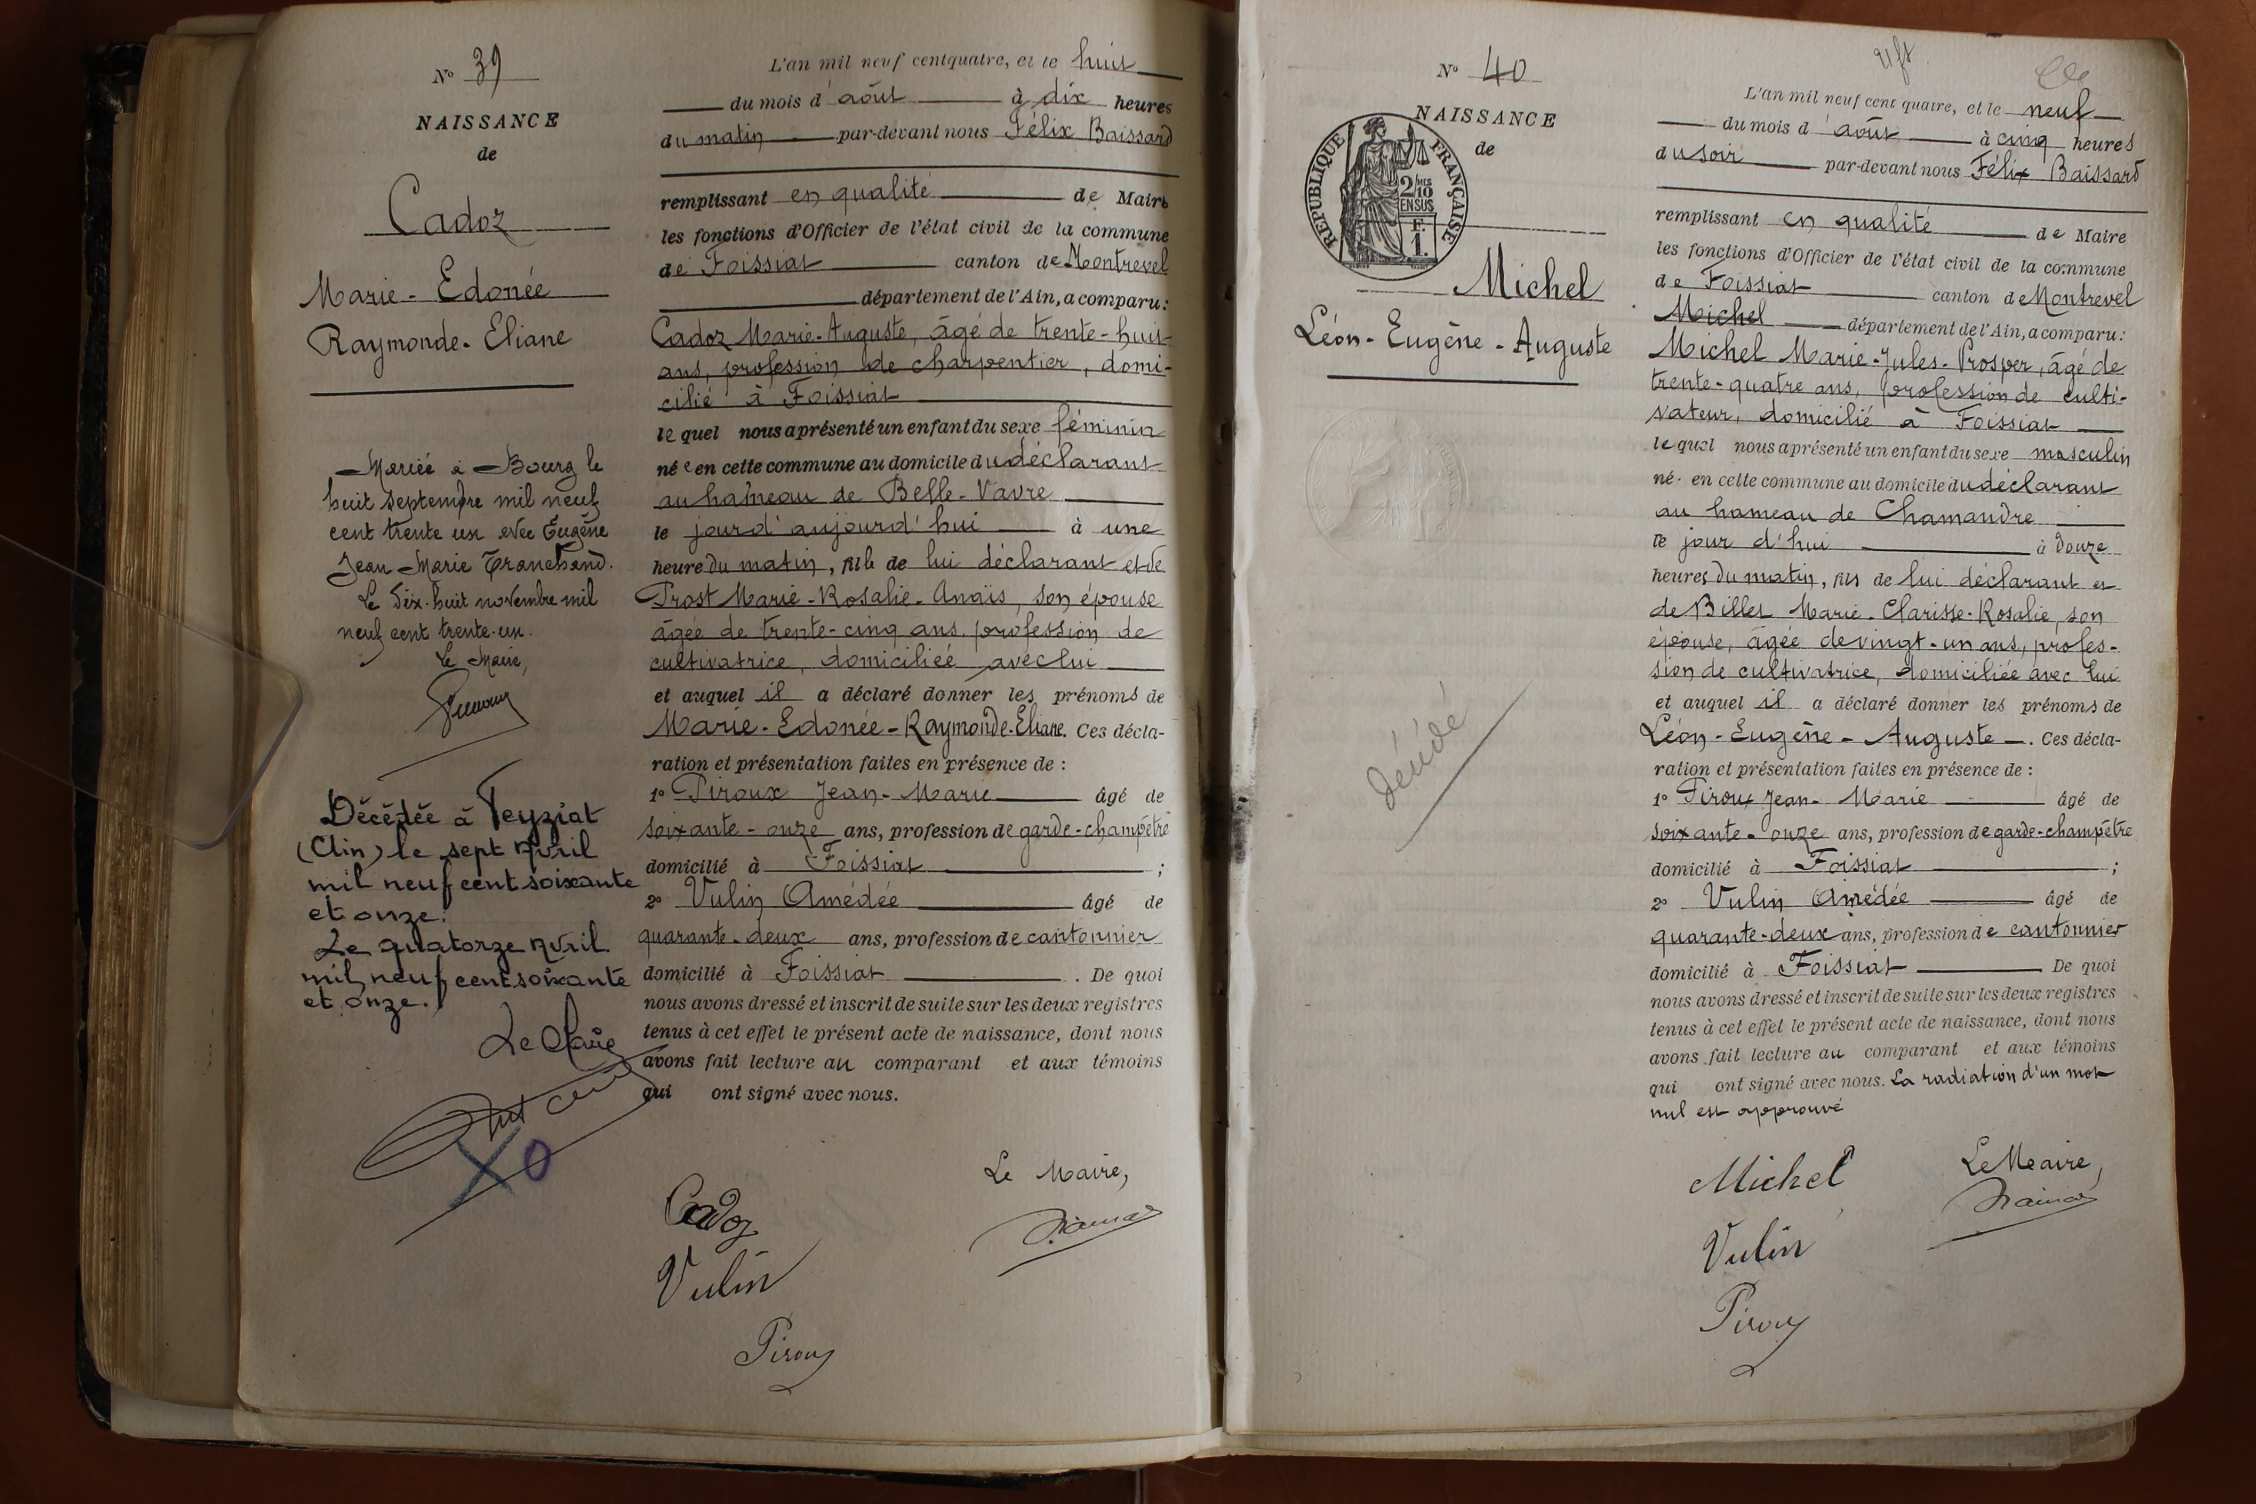 N° 39
NAISSANCE
de
Cadoz
Marie-Edonée
Raymonde-Eliane
Mariée à Bourg le
huit septembre mil neuf
cent trente un avec Eugène
Jean Marie Tranchand.
Le dix-huit novembre mil
neuf cent trente-un.
Le Maire,
Décédée à Peyziat
(Clin) le sept Avril
mil neuf cent soixante
et onze.
Le quatorze Avril
mil neuf cent soixante
et onze.
Le Maire
L'an mil neuf cent quatre, et le huit
du mois d'août à dix heures
du matin par-devant nous Félix Baissard
remplissant en qualité de Maire
les fonctions d'Officier de l'état civil de la commune
de Foissiat canton de Montrevel
département de l'Ain, a comparu:
Cadoz Marie-Auguste, âgé de trente-huit
ans, profession de charpentier, domi-
cilié à Foissiat
le quel nous a présenté un enfant du sexe féminin
née en cette commune au domicile du déclarant
au hameau de Belle-Vavre
le jour d'aujourd'hui à une
heure du matin, fille de lui déclarant et de
Prost Marie-Rosalie-Anaïs, son épouse
âgée de trente-cinq ans, profession de
cultivatrice, domiciliée avec lui
et auquel il a déclaré donner les prénoms de
Marie-Edonée-Raymonde-Eliane. Ces décla-
ration et présentation faites en présence de :
1° Piroux Jean-Marie âgé de
soixante-onze ans, profession de garde-champêtre
domicilié à Foissiat ;
2° Vulin Amédée âgé de
quarante-deux ans, profession de cantonnier
domicilié à Foissiat . De quoi
nous avons dressé et inscrit de suite sur les deux registres
tenus à cet effet le présent acte de naissance, dont nous
avons fait lecture au comparant et aux témoins
qui ont signé avec nous.
Le Maire,
Cadoz
Vulin
Piroux
N° 40
NAISSANCE
de
RÉPUBLIQUE FRANÇAISE
2/10 EN SUS
F. 1.
Michel
Léon-Eugène-Auguste
décédé
L'an mil neuf cent quatre, et le neuf
du mois d'août à cinq heures
du soir par-devant nous Félix Baissard
remplissant en qualité de Maire
les fonctions d'Officier de l'état civil de la commune
de Foissiat canton de Montrevel
Michel département de l'Ain, a comparu:
Michel Marie-Jules-Prosper, âgé de
trente-quatre ans, profession de culti-
vateur, domicilié à Foissiat
le quel nous a présenté un enfant du sexe masculin
né en cette commune au domicile du déclarant
au hameau de Chamandre
le jour d'hui à douze
heures du matin, fils de lui déclarant et
de Billet Marie-Clarisse-Rosalie, son
épouse, âgée de vingt-un ans, profes-
sion de cultivatrice, domiciliée avec lui
et auquel il a déclaré donner les prénoms de
Léon-Eugène-Auguste. Ces décla-
ration et présentation faites en présence de :
1° Piroux Jean-Marie âgé de
soixante-onze ans, profession de garde-champêtre
domicilié à Foissiat ;
2° Vulin Amédée âgé de
quarante-deux ans, profession de cantonnier
domicilié à Foissiat De quoi
nous avons dressé et inscrit de suite sur les deux registres
tenus à cet effet le présent acte de naissance, dont nous
avons fait lecture au comparant et aux témoins
qui ont signé avec nous. La radiation d'un mot
nul est approuvé
Michel
Le Maire,
Vulin
Piroux